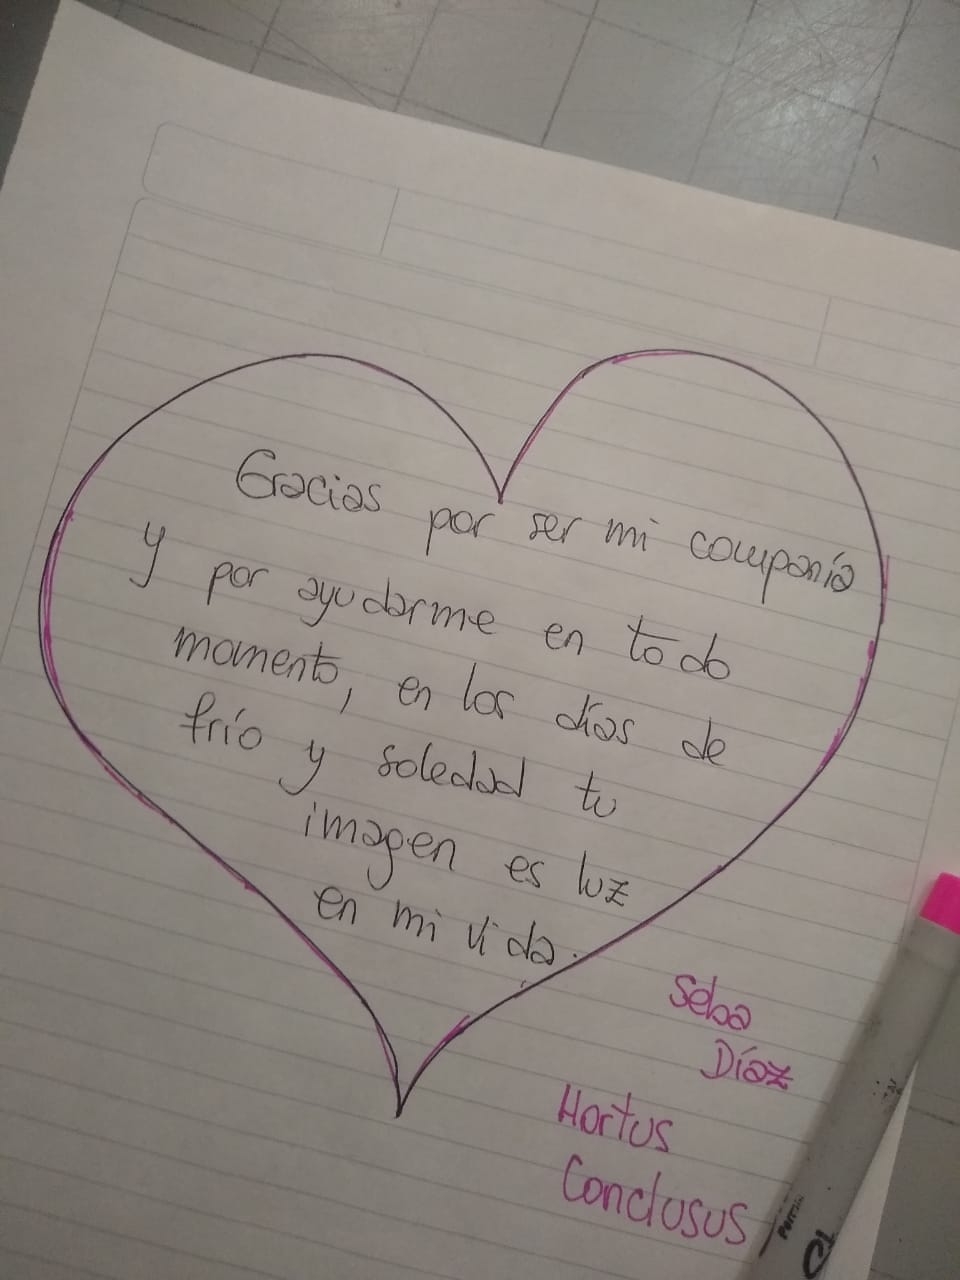 Gracias por ser mi compania
y por ayudarme en todo
momento, en los días de
frío y soledad tu
imagen es luz
en mi vida.
Seba
Díaz
Hortus
Conclusus